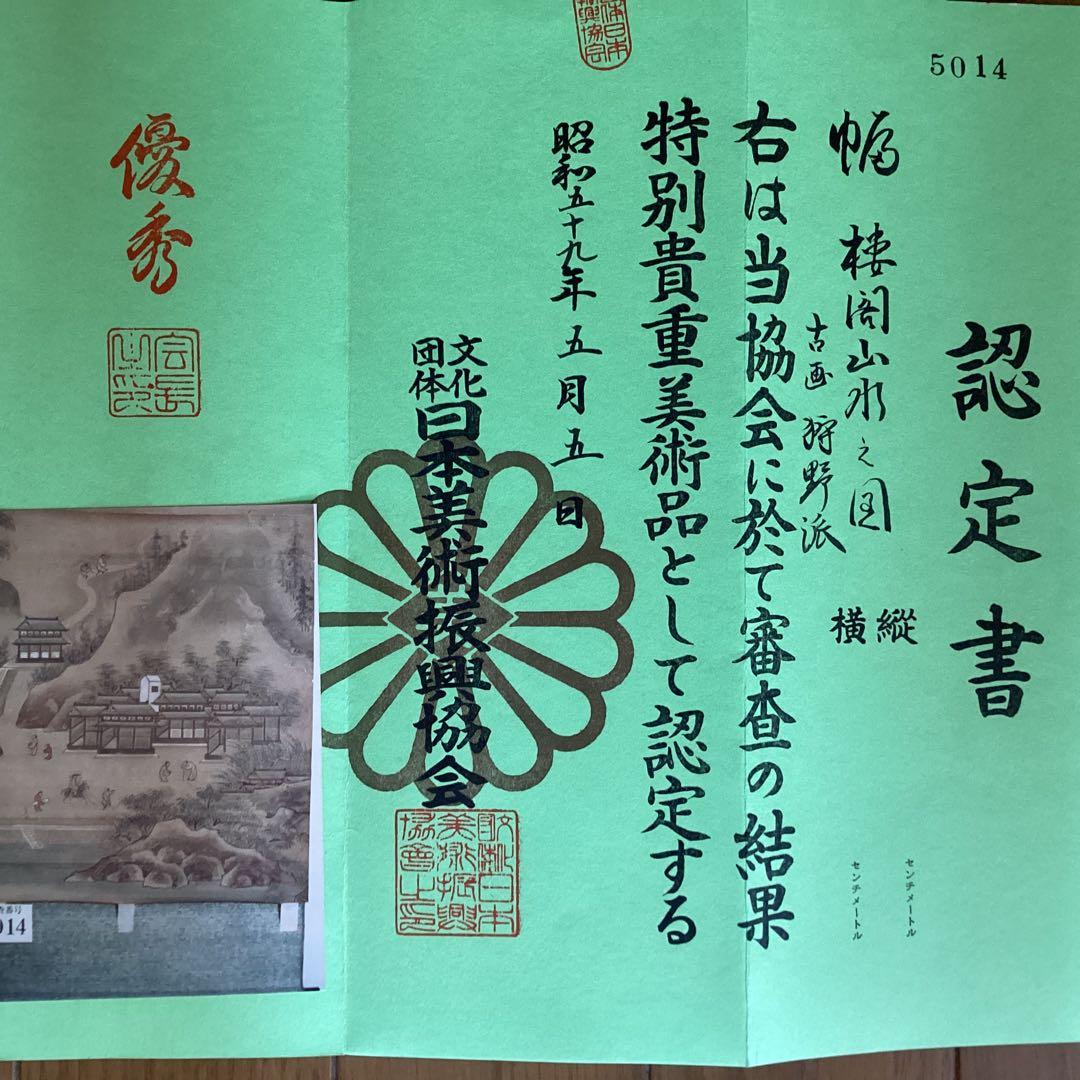 5014
認定書
幅 楼閣山水之図
古画 狩野派
縦 センチメートル
横 センチメートル
右は当協会に於て審査の結果
特別貴重美術品として認定する
昭和五十九年五月五日
文化
団体
日本美術振興協会
文化団体日本
美術振興
協會之印
優秀
会長
之印
014